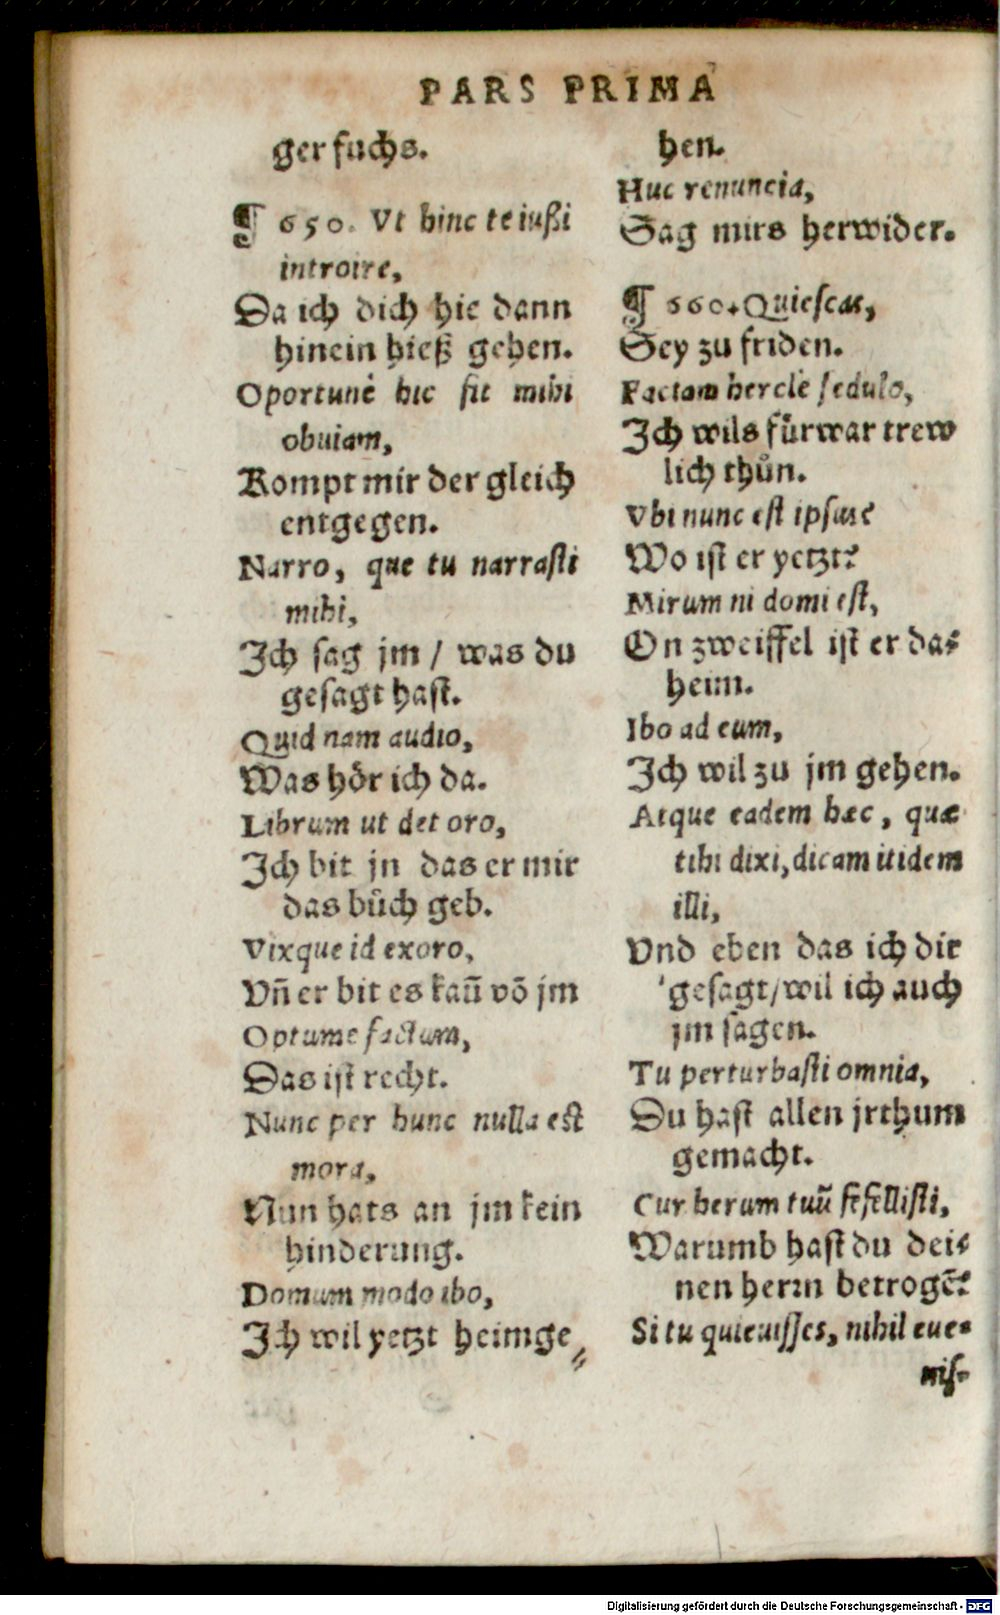 PARS PRIMA
ger fuchs.
¶ 650. Vt hinc te iußi
introire,
Da ich dich hie dann
hinein hieß gehen.
Oportunè hic fit mihi
obuiam,
Kompt mir der gleich
entgegen.
Narro, que tu narrasti
mihi,
Ich sag jm / was du
gesagt hast.
Quid nam audio,
Was hoͤr ich da.
Librum ut det oro,
Ich bit jn das er mir
das buͦch geb.
Vixque id exoro,
Vñ er bit es kaũ võ jm
Optume factum,
Das ist recht.
Nunc per hunc nulla est
mora,
Nun hats an jm kein
hinderung.
Domum modo ibo,
Ich wil yetzt heimge⸗
hen.
Huc renuncia,
Sag mirs herwider.
¶ 660. Quiescas,
Sey zu friden.
Factam hercle sedulo,
Ich wils fürwar trew
lich thuͦn.
Vbi nunc est ipsus?
Wo ist er yetzt?
Mirum ni domi est,
On zweiffel ist er da⸗
heim.
Ibo ad eum,
Ich wil zu jm gehen.
Atque eadem hæc, quæ
tibi dixi, dicam itidem
illi,
Vnd eben das ich dir
gesagt/wil ich auch
jm sagen.
Tu perturbasti omnia,
Du hast allen jrthum
gemacht.
Cur herum tuũ fefellisti,
Warumb hast du dei⸗
nen herrn betrogẽ?
Si tu quieuisses, nihil eue⸗
nis-
Digitalisierung gefördert durch die Deutsche Forschungsgemeinschaft - DFG